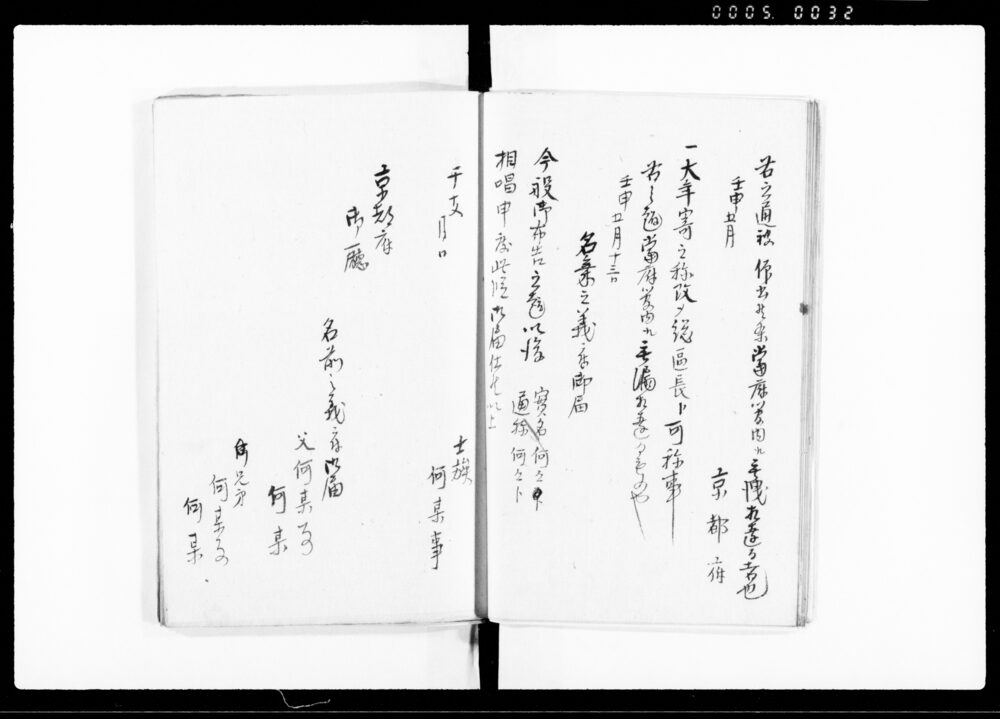 0005. 0032
右之通被 仰出候条当府管内江無洩相達る者也
壬申五月
京都府
一大年寄之称改メ総區長ト可称事
右之通当府管内江無漏相達るもの也
壬申五月十三日
名乗之義ニ付御届
今般御布告之通以後 實名何之ト
通称何之ト
相唱申度此段御届仕候以上
士族
何某事
干支月日
京都府
御廳
名前之義ニ付御届
父何某
何某
兄弟
何某
何某